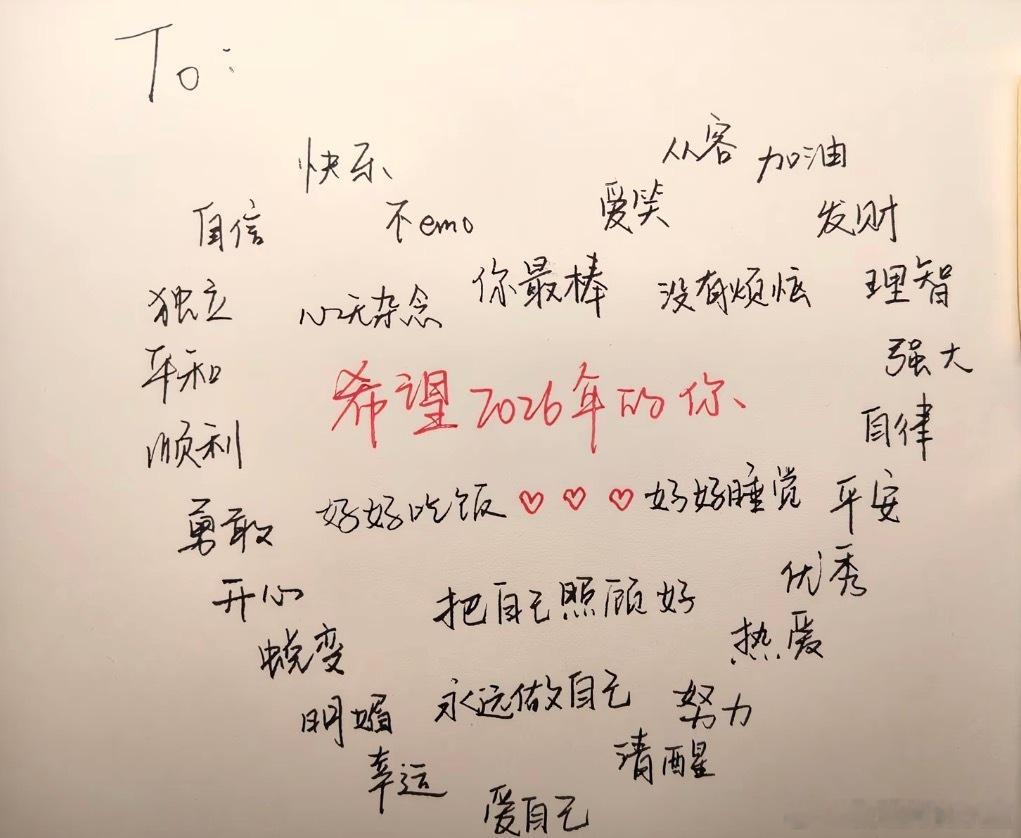 To:
从容 加油
快乐
自信 不emo 爱笑 发财
独立 心无杂念 你最棒 没有烦恼 理智
平和 强大
希望2026年的你、
顺利 自律
勇敢 好好吃饭♡♡♡好好睡觉 平安
开心 把自己照顾好 优秀
蜕变 热爱
明媚 永远做自己 努力
幸运 清醒
爱自己